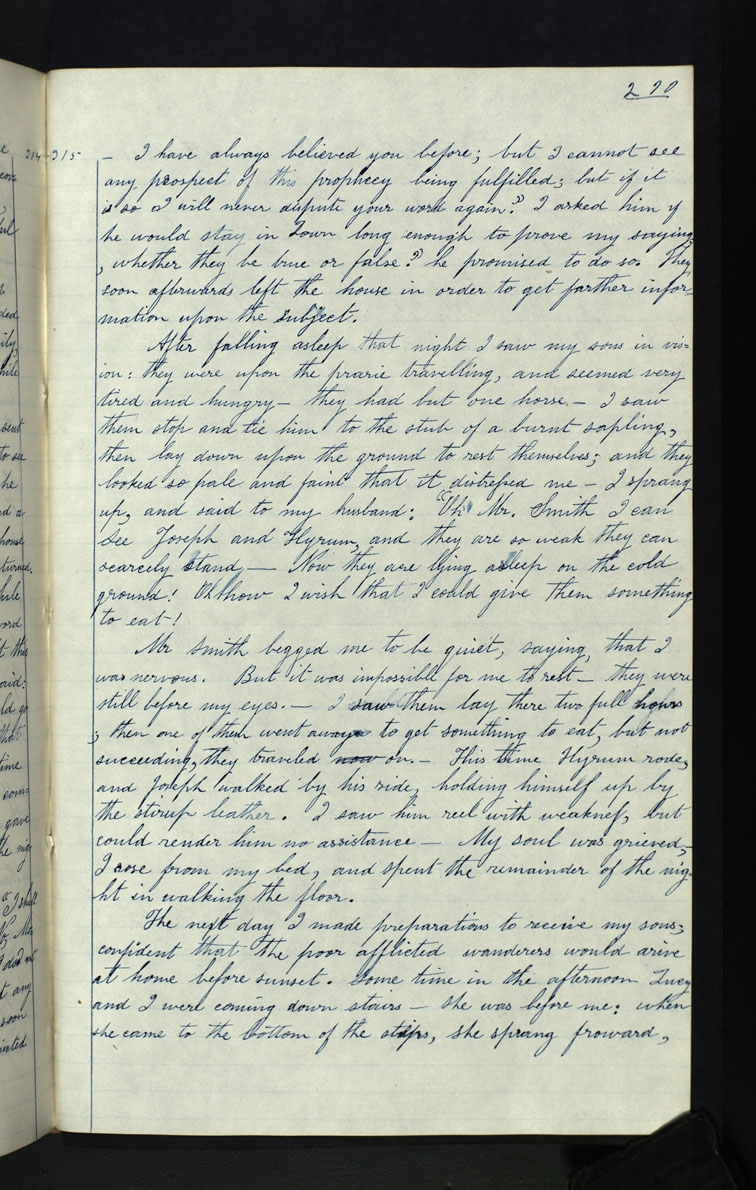 290
314-315
– I have always believed you before; but I cannot see
any prospect of this prophecy being fulfilled; but if it
is so I will never dispute your word again." I asked him if
he would stay in Town long enough to prove my sayings
, whether they be true or false? he promised to do so. They
soon afterwards left the house in order to get farther infor-
mation upon the subject.
After falling asleep that night I saw my sons in vis-
ion: they were upon the prarie travelling, and seemed very
tired and hungry – they had but one horse. – I saw
them stop and tie him to the stub of a burnt sapling,
then lay down upon the ground to rest themselves; and they
looked so pale and faint that it distressed me – I sprang
up, and said to my husband: "Oh Mr. Smith I can
see Joseph and Hyrum, and they are so weak they can
scarcely stand – Now they are lying asleep on the cold
ground! Oh! how I wish that I could give them something
to eat!
Mr Smith begged me to be quiet, saying, that I
was nervous. But it was impossible for me to rest – they were
still before my eyes. – I saw them lay there two full hours
; then one of them went away to get something to eat, but not
succeeding, they traveled now on. – This time Hyrum rode,
and Joseph walked by his side, holding himself up by
the stirup leather. I saw him reel with weakness, but
could render him no assistance – My soul was grieved,–
I rose from my bed, and spent the remainder of the nig-
ht in walking the floor.
The next day I made preparations to receive my sons;
confident that the poor afflicted wanderers would arive
at home before sunset. Some time in the afternoon Lucy
and I were coming down stairs – she was before me: when
she came to the bottom of the stairs, she sprang froward,